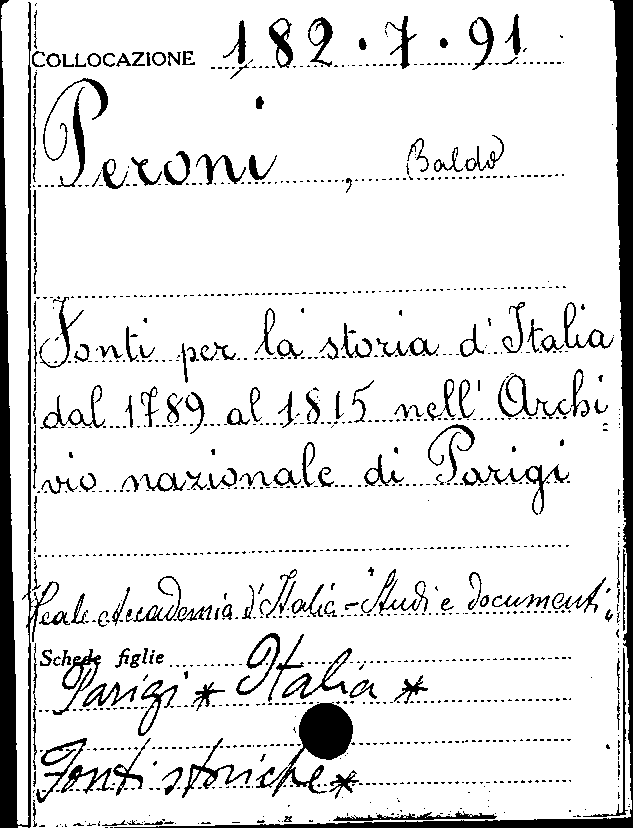 COLLOCAZIONE 182.7.91
Peroni, Baldo
Fonti per la storia d'Italia
dal 1789 al 1815 nell'Archi=
vio nazionale di Parigi
Reale Accademia d'Italia - "Studi e documenti"
Schede figlie
Parigi * Italia *
Fonti storiche *